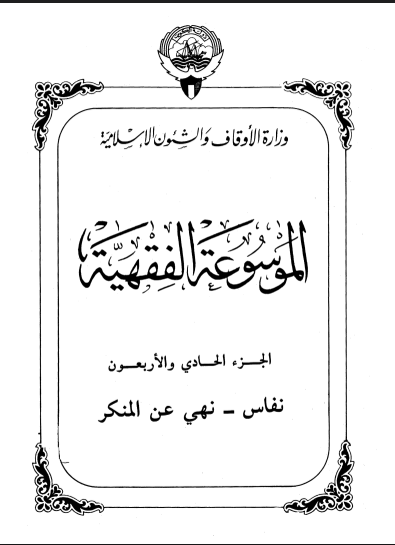 وزارة الأوقاف والشئون الإسلامية
الموسوعة الفقهية
الجزء الحادي والأربعون
نفاس – نهي عن المنكر